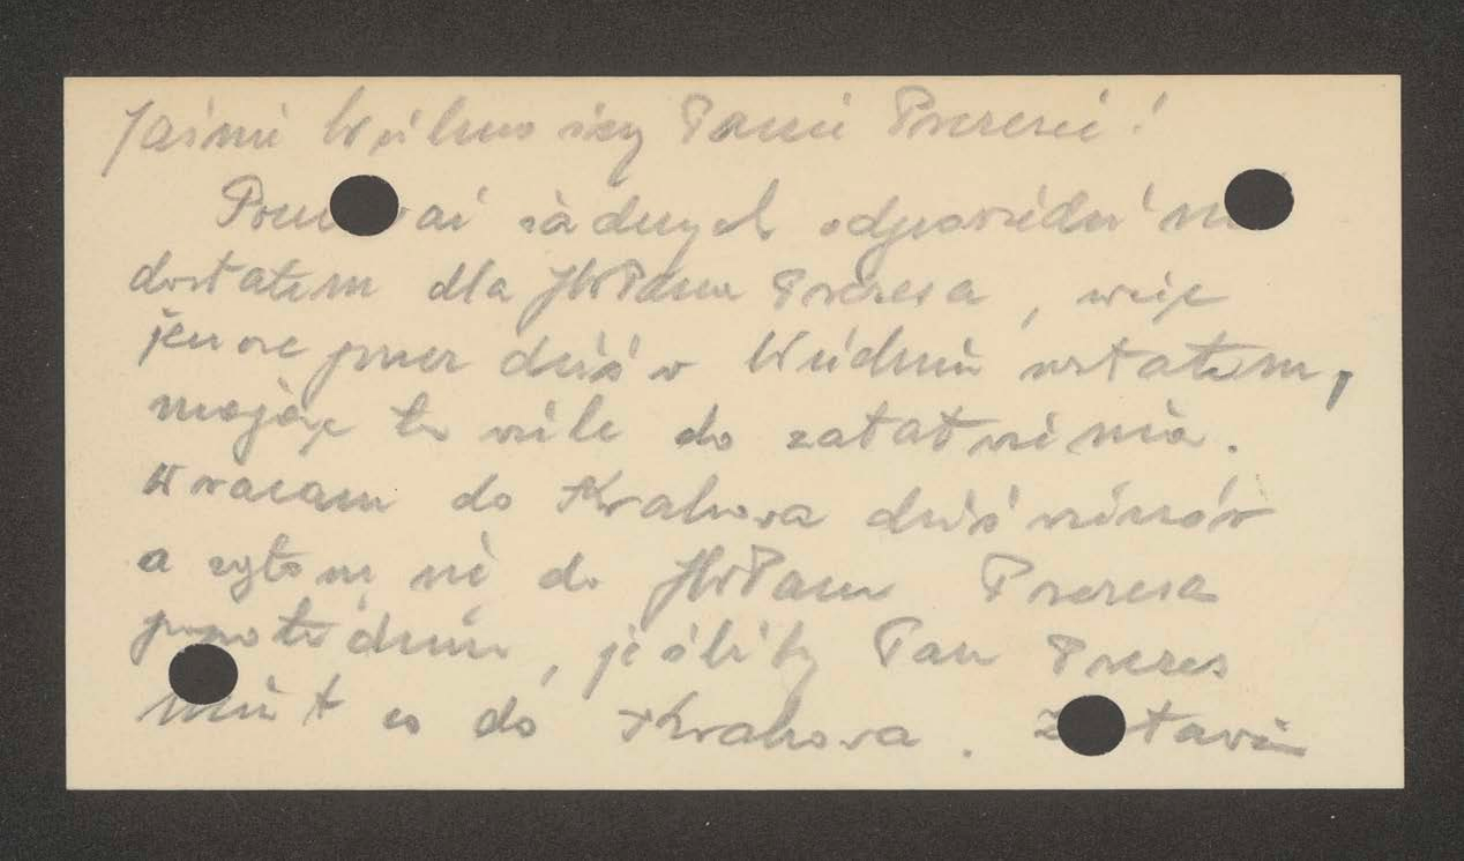 Jaśnie Wielmożny Panie Prezesie!
Ponieważ żadnych odpowiedzi nie
dostałem dla JWPana Prezesa, więc
jeszcze przez dziś w Wiedniu zostałem,
mając tu wiele do załatwienia.
Wracam do Krakowa dziś wieczór
a zgłoszę się do JWPana Prezesa
popołudniu, jeśliby Pan Prezes
miał co do Krakowa. Zostawi